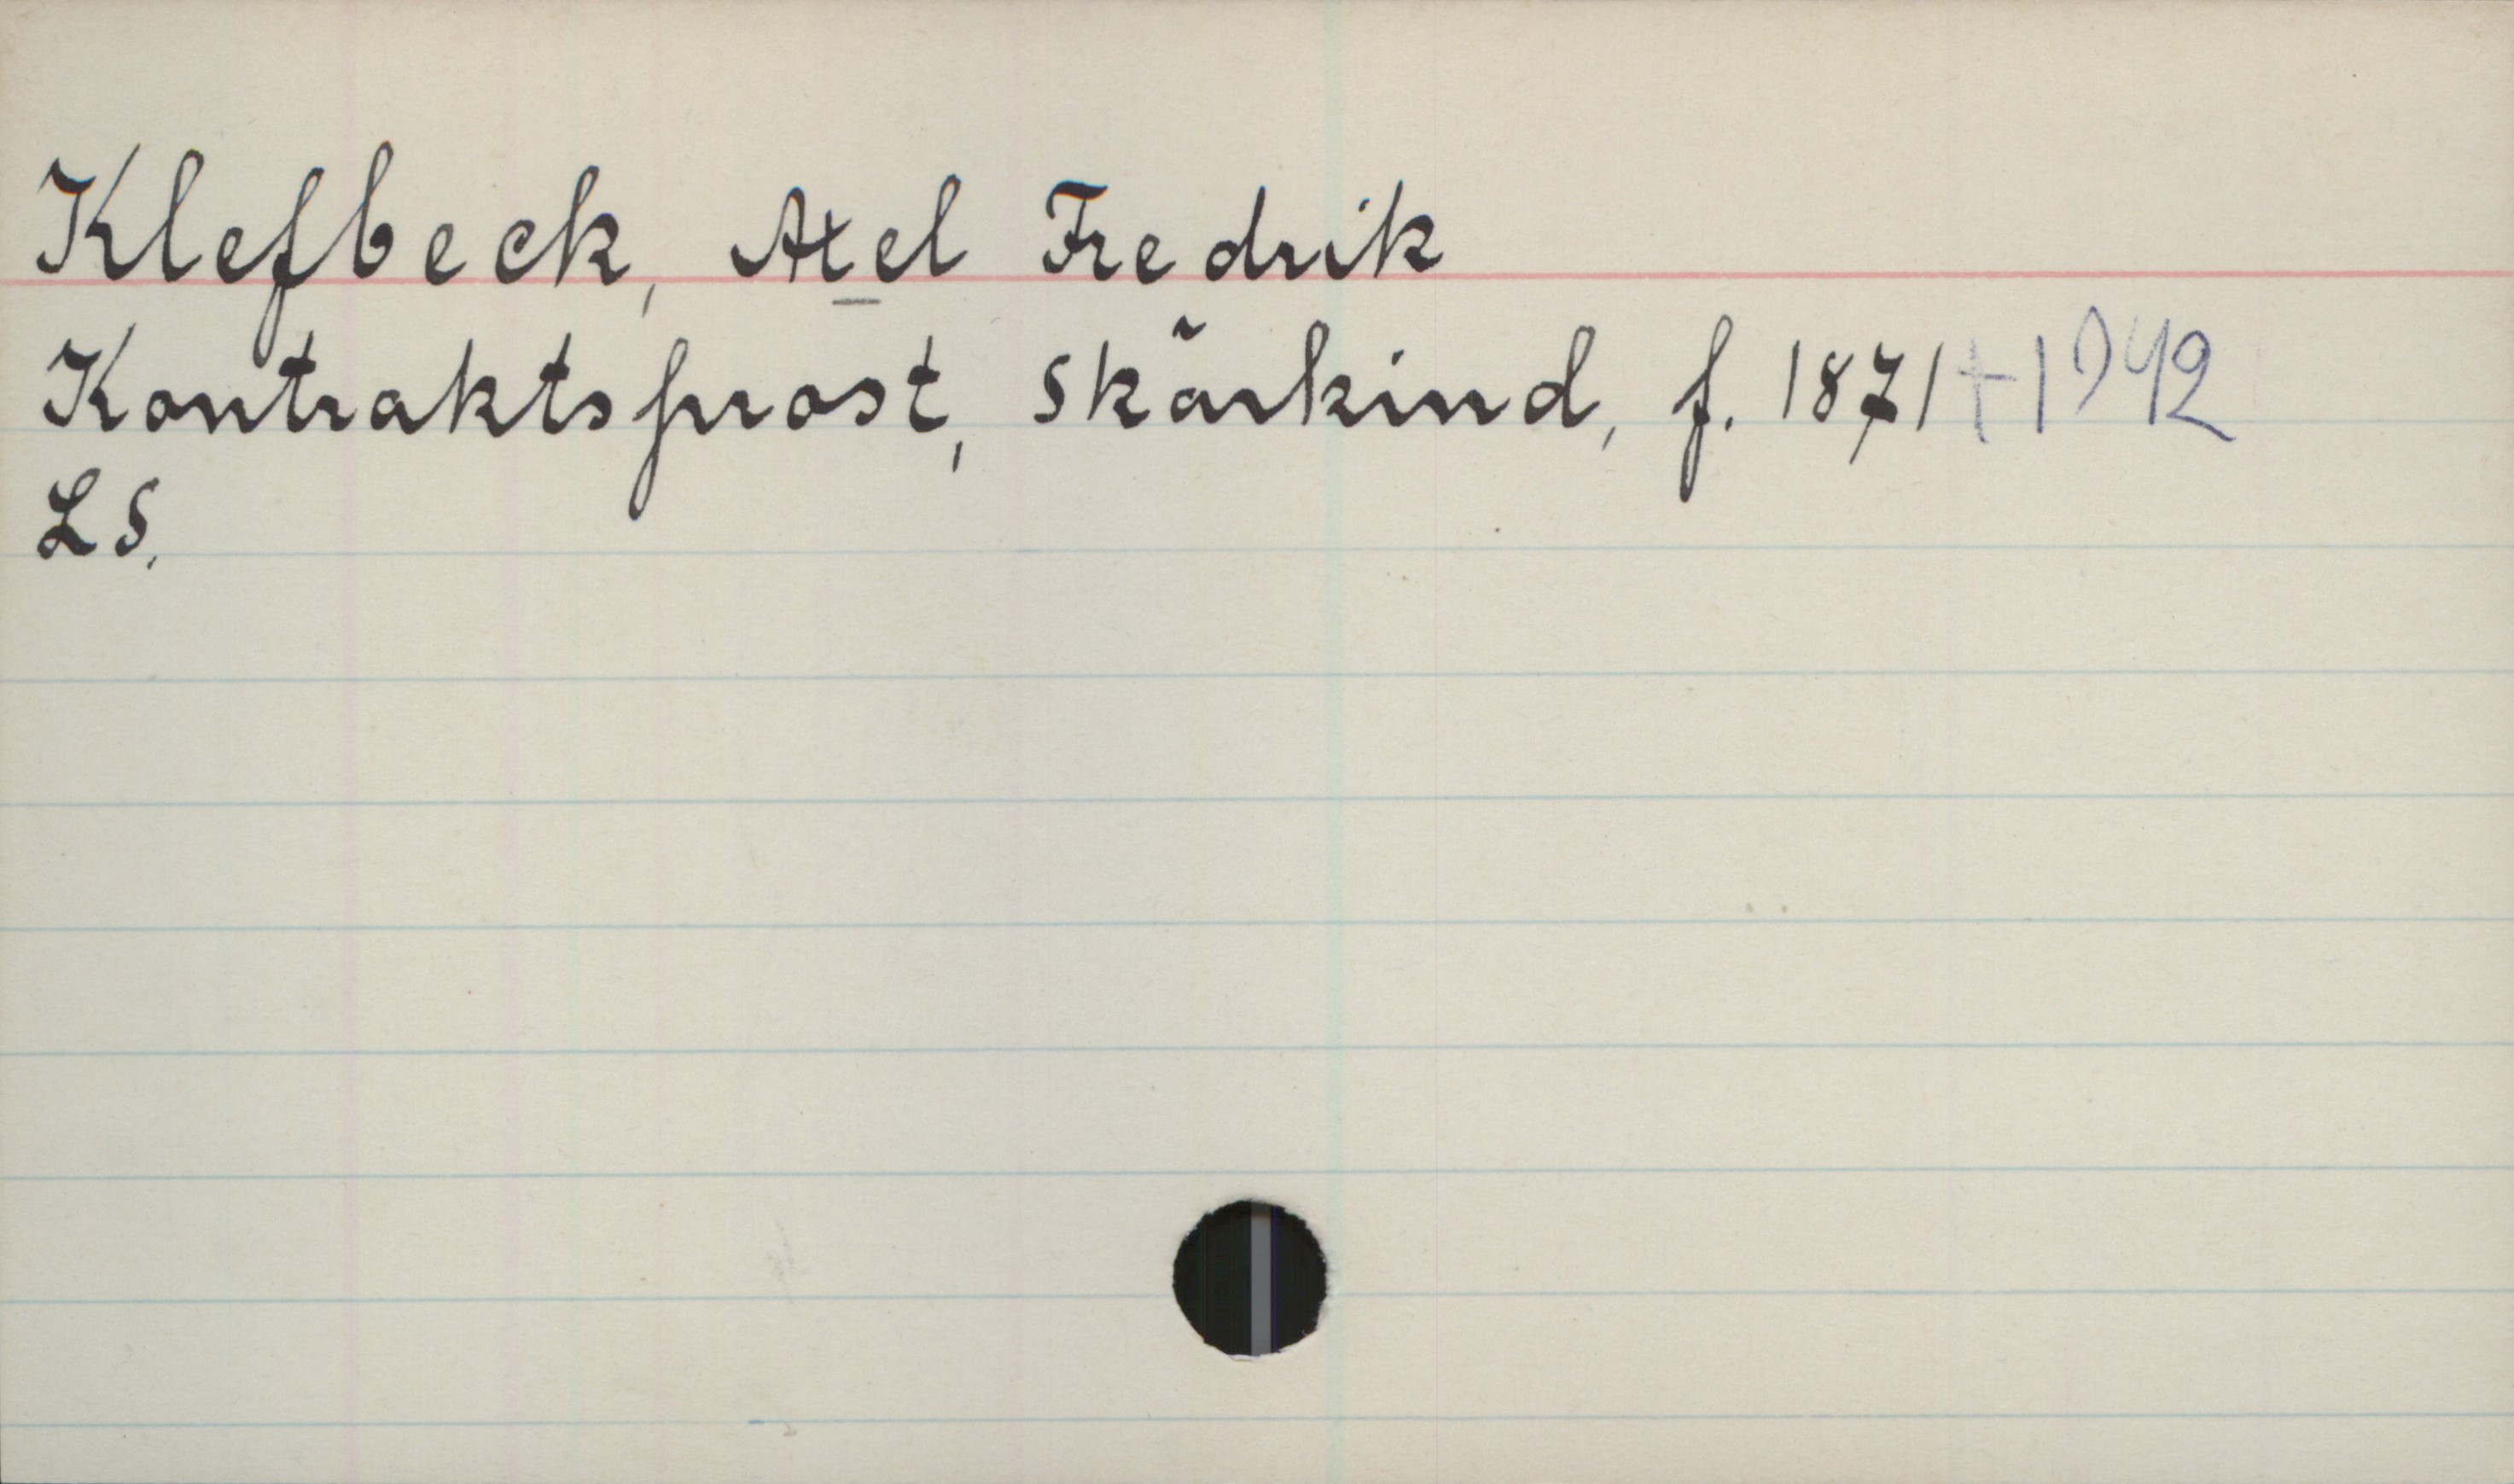 Klefbeck, Axel Fredrik
Kontraktsprost, Skärkind, f. 1871 +1942
LS.